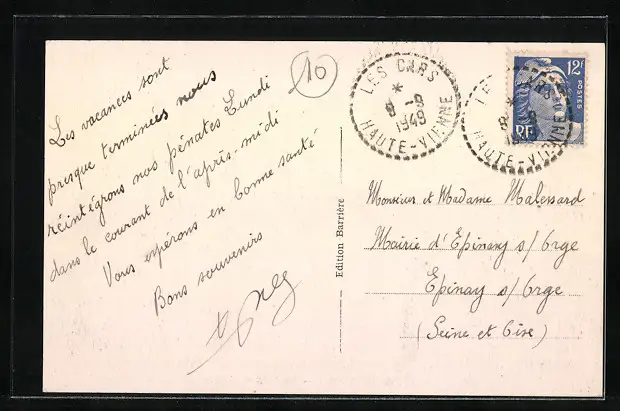 Les vacances sont
presque terminées nous
réintégrons nos pénates Lundi
dans le courant de l'après-midi
Vous espérons en bonne santé
Bons souvenirs
10
LES CARS
*
9-9
1949
HAUTE-VIENNE
LES CARS
*
HAUTE-VIENNE
12F
POSTES
RF
Edition Barrière
Monsieur et Madame
Mairie d'Epinay s/ Orge
Epinay s/ Orge
(Seine et Oise)